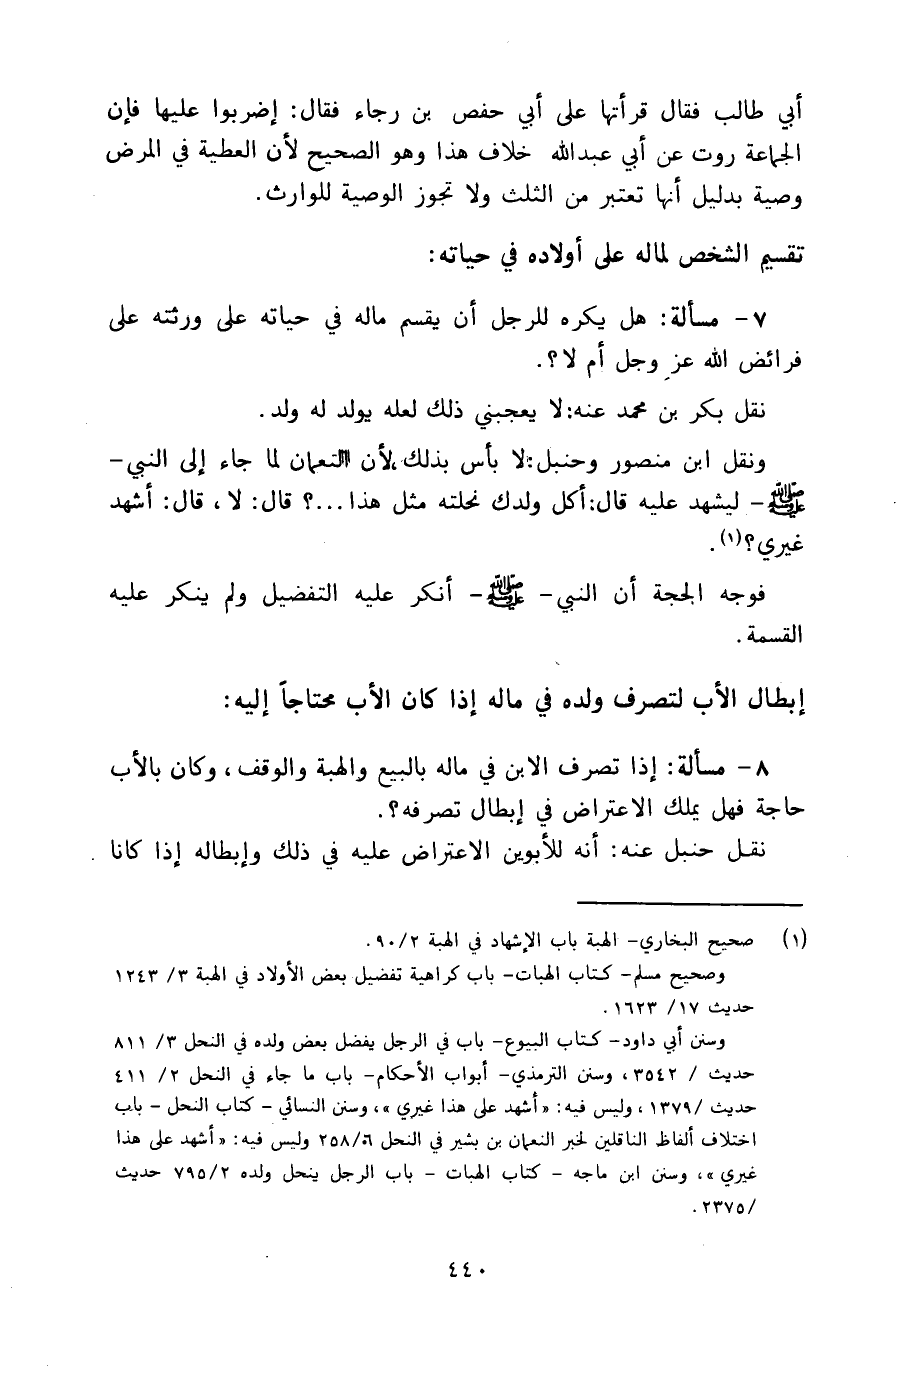 أبي طالب فقال قرأتها على أبي حفص بن رجاء فقال: إضربوا عليها فإن
الجماعة روت عن أبي عبدالله خلاف هذا وهو الصحيح لأن العطية في المرض
وصية بدليل أنها تعتبر من الثلث ولا تجوز الوصية للوارث.
تقسيم الشخص لماله على أولاده في حياته:
٧- مسألة: هل يكره للرجل أن يقسم ماله في حياته على ورثته على
فرائض الله عز وجل أم لا؟.
نقل بكر بن محمد عنه: لا يعجبني ذلك لعله يولد له ولد.
ونقل ابن منصور وحنبل: لا بأس بذلك، لأن النعمان لما جاء إلى النبي-
ﷺ- ليشهد عليه قال: أكل ولدك نحلته مثل هذا...؟ قال: لا، قال: أشهد
غيري؟(١).
فوجه الحجة أن النبي- ﷺ- أنكر عليه التفضيل ولم ينكر عليه
القسمة.
إبطال الأب لتصرف ولده في ماله إذا كان الأب محتاجاً إليه:
٨- مسألة: إذا تصرف الابن في ماله بالبيع والهبة والوقف، وكان بالأب
حاجة فهل يملك الاعتراض في إبطال تصرفه؟.
نقل حنبل عنه: أنه للأبوين الاعتراض عليه في ذلك وإبطاله إذا كانا
(١) صحيح البخاري- الهبة باب الإشهاد في الهبة ٩٠/٢.
وصحيح مسلم- كتاب الهبات- باب كراهية تفضيل بعض الأولاد في الهبة ٣/ ١٢٤٣
حديث ١٧/ ١٦٢٣.
وسنن أبي داود- كتاب البيوع- باب في الرجل يفضل بعض ولده في النحل ٣/ ٨١١
حديث / ٣٥٤٢، وسنن الترمذي- أبواب الأحكام- باب ما جاء في النحل ٢/ ٤١١
حديث /١٣٧٩، وليس فيه: «أشهد على هذا غيري»، وسنن النسائي - كتاب النحل - باب
اختلاف ألفاظ الناقلين لخبر النعمان بن بشير في النحل ٢٥٨/٦ وليس فيه: «أشهد على هذا
غيري»، وسنن ابن ماجه - كتاب الهبات - باب الرجل ينحل ولده ٧٩٥/٢ حديث
/٢٣٧٥.
٤٤٠